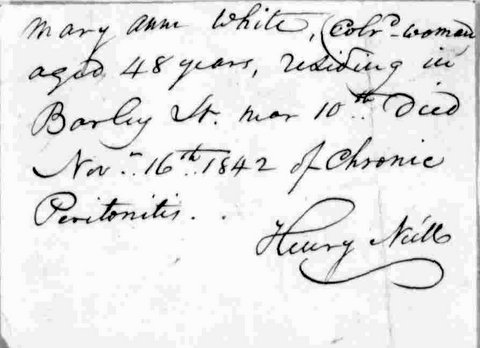 Mary Ann White, (Colrd. woman
aged 48 years, residing in
Barley St. near 10th. Died
Novr. 16th. 1842 of Chronic
Peritonitis.
Henry Neill